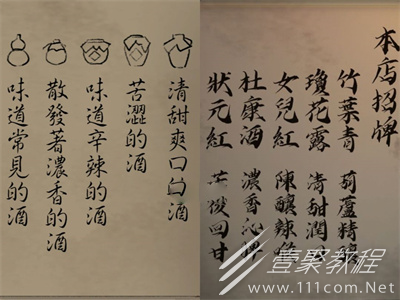 清甜爽口的酒
苦澀的酒
味道辛辣的酒
散發著濃香的酒
味道常見的酒
本店招牌
竹葉青 葫蘆精釀
瓊花露 清甜潤
女兒紅 陳釀辣
杜康酒 濃香沁脾
狀元紅 回甘
壹聚教程
www.111com.Net